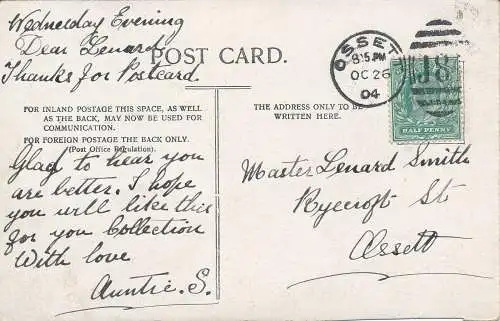 Wednesday Evening
Dear Lenard
Thanks for Postcard
POST CARD.
FOR INLAND POSTAGE THIS SPACE, AS WELL
AS THE BACK, MAY NOW BE USED FOR
COMMUNICATION.
FOR FOREIGN POSTAGE THE BACK ONLY.
(Post Office Regulation).
Glad to hear you
are better. I hope
you will like this
for you Collection
With love
Auntie. S.
OSSETT
8.15 PM
OC 26
04
J18
HALF PENNY
THE ADDRESS ONLY TO BE
WRITTEN HERE.
Master Lenard Smith
Ryecroft St
Ossett